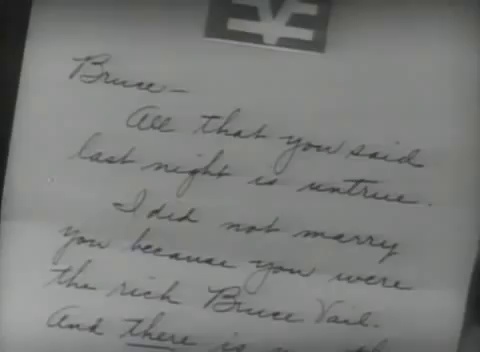 Bruce-
All that you said
last night is untrue.
I did not marry
you because you were
the rich Bruce Vail.
And there is